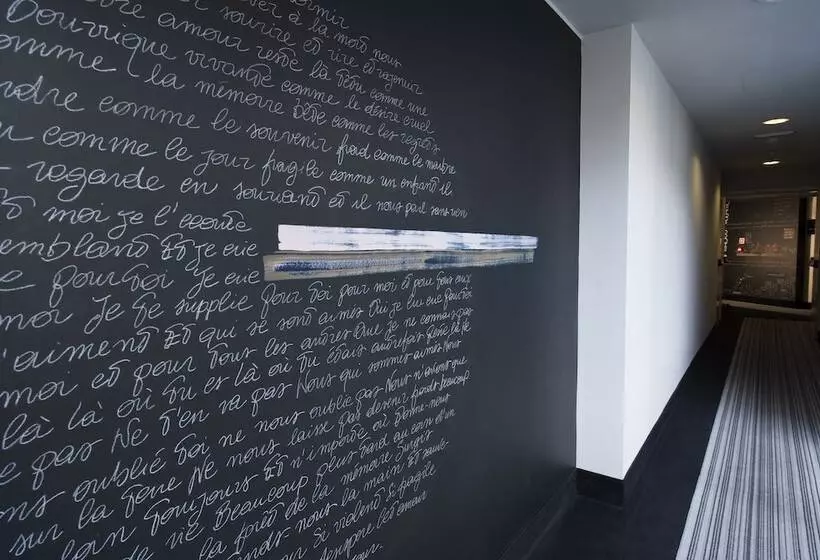 dormir
à la mort nous
sourire et rire et rajeunir
amour reste là Têtu comme une
Bourrique vivante comme le désir cruel
comme la mémoire Bête comme les regrets
Tendre comme le souvenir froid comme le marbre
comme le jour fragile comme un enfant il
regarde en souriant et il nous parle sans rien
moi je l'écoute
Tremblant Et je crie
pour Toi Je crie
moi Je Te supplie pour Toi pour moi et pour Tous ceux
s'aiment Et qui se sont aimés Oui je lui crie Pour Toi
moi et pour Tous les autres Que je ne connais pas
là là où Tu es là où Tu étais autrefois Reste là Ne
pas Ne T'en va pas Nous qui sommes aimés Nous
oublié Toi ne nous oublie pas Nous n'avions que
sur la Terre Ne nous laisse pas devenir froids Beaucoup
loin Toujours Et n'importe où Donne-nous
de vie Beaucoup plus Tard au coin d'un
la forêt de la mémoire Surgis
Tends nous la main Et sauve-